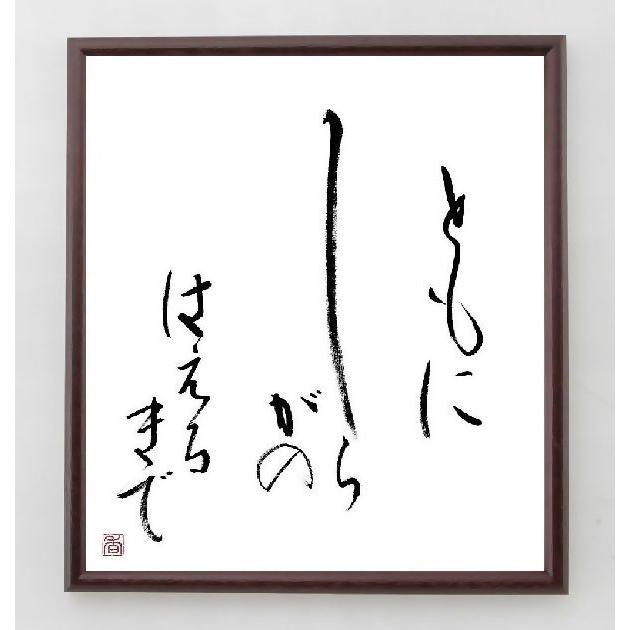 ともに
しら
がの
はえる
まで